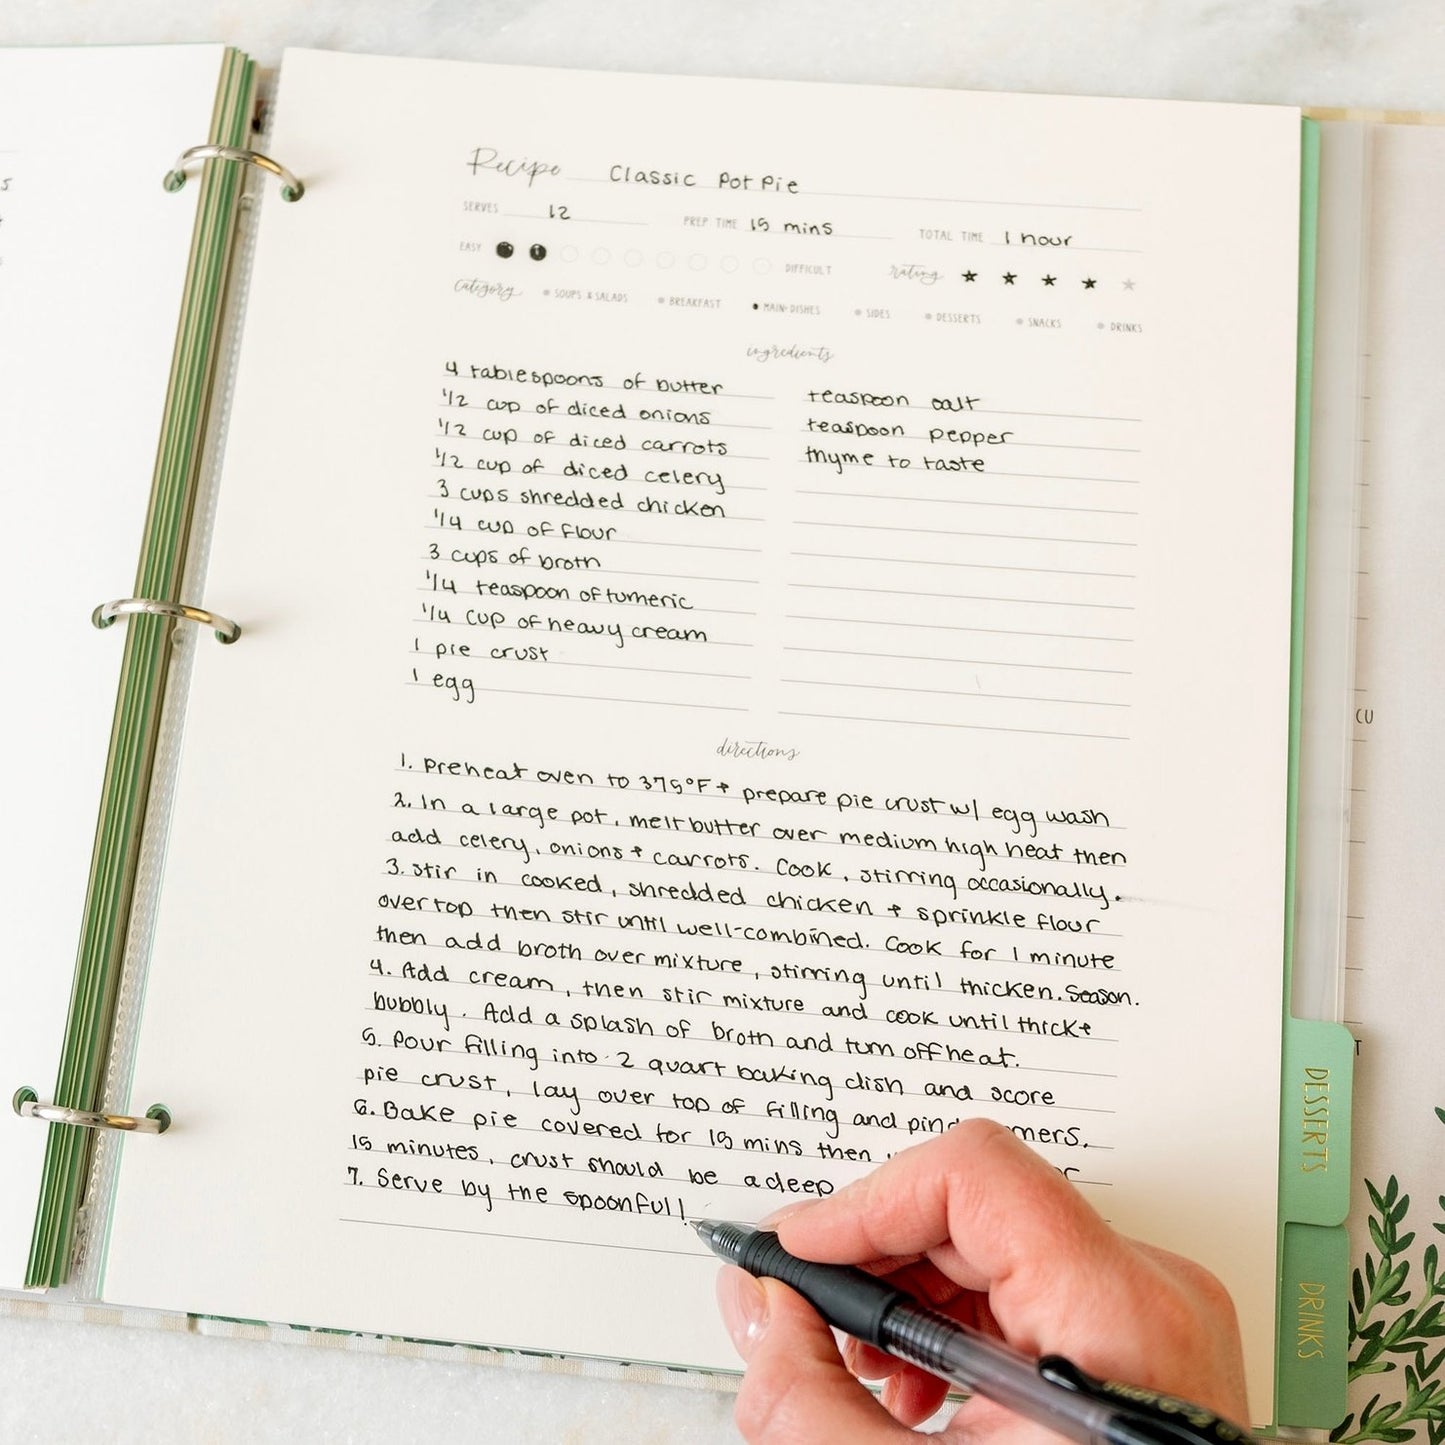 Recipe Classic Pot Pie
SERVES 12 PREP TIME 15 mins TOTAL TIME 1 hour
EASY DIFFICULT rating
category SOUPS & SALADS BREAKFAST MAIN DISHES SIDES DESSERTS SNACKS DRINKS
ingredients
4 tablespoons of butter
1/2 cup of diced onions
1/2 cup of diced carrots
1/2 cup of diced celery
3 cups shredded chicken
1/4 cup of flour
3 cups of broth
1/4 teaspoon of tumeric
1/4 cup of heavy cream
1 pie crust
1 egg
teaspoon salt
teaspoon pepper
thyme to taste
directions
1. Preheat oven to 375°F + prepare pie crust w/ egg wash
2. In a large pot, melt butter over medium high heat then
add celery, onions + carrots. Cook, stirring occasionally.
3. Stir in cooked, shredded chicken + sprinkle flour
over top then stir until well-combined. Cook for 1 minute
then add broth over mixture, stirring until thicken. Season.
4. Add cream, then stir mixture and cook until thick +
bubbly. Add a splash of broth and turn off heat.
5. Pour filling into 2 quart baking dish and score
pie crust, lay over top of filling and
6. Bake pie covered for 15 mins then
15 minutes, crust should be a deep
7. Serve by the spoonful!
CU
T
DESSERTS
DRINKS